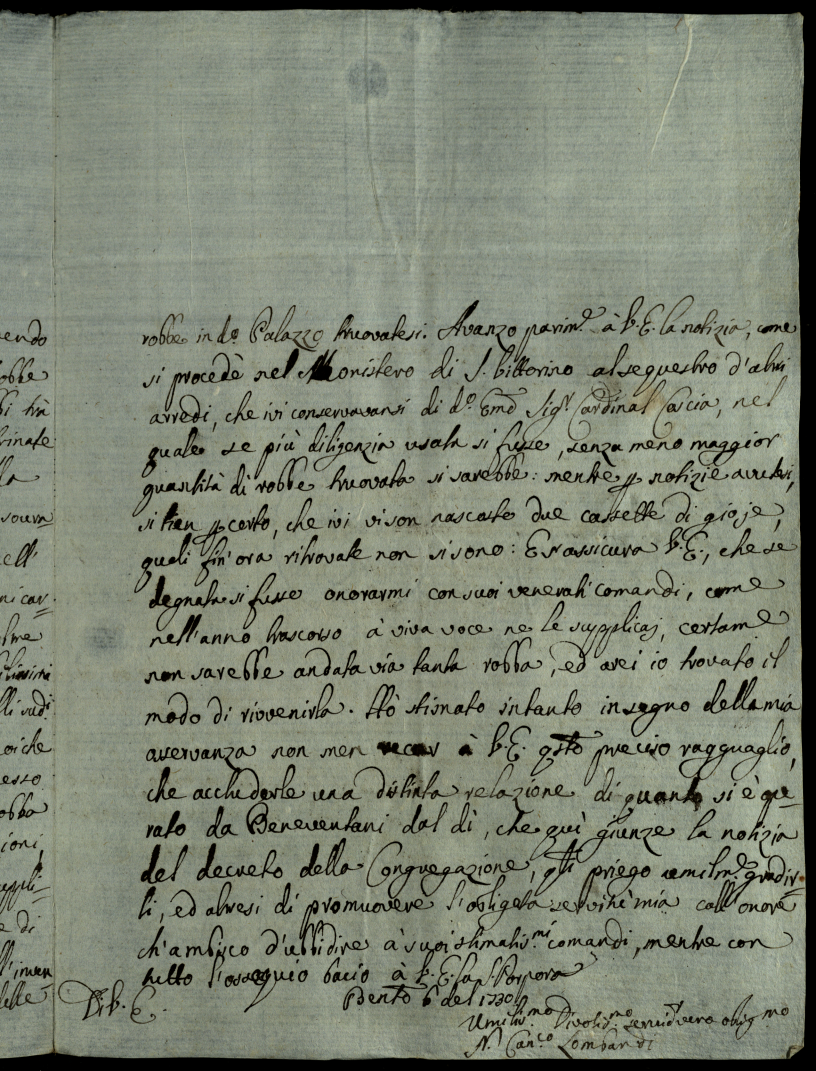 robbe in d.º Palazzo truovatesi. Avanzo parim.e à V.E. la notizia, come
si procedè nel Monistero di S. Vittorino al sequestro d'altri
arredi, che ivi conservavansi di d.º Emo Sig.r Cardinal Coscia, nel
quale se più diligenzia usata si fusse, senza meno maggior
quantità di robbe truovata si sarebbe: mentre p notizie avutesi,
si tien p certo, che ivi vi son nascoste due cassette di gioje,
quali fin'ora ritrovate non si sono: E rassicura V.E., che se
degnata si fusse onorarmi con suoi venerati comandi, come
nell'anno trascorso à viva voce ne le supplicaj, certame
non sarebbe andata via tanta robba, ed avei io trovato il
modo di rivvenirla. Hò stimato intanto in segno della mia
osservanza non men recar à V.E. qsto preciso ragguaglio,
che acchiuderle una distinta relazione di quanto si è ope-
rato da Beneventani dal dì, che quì giunze la notizia
del decreto della Congregazione, qli priego umilm.e gradir-
li, ed altresi di promuovere l'obligata servitù mia coll'onore
ch'ambisco d'ubbidire à suoi stimatis.mi comandi, mentre con
tutto l'ossequio bacio à V.E. la S. Porpora
Di V.E. Bento 6 del 1730
Umilis.mo Divotis.mo servid.r vero oblig.mo
N. Can.co Lombardi
endo
robbe
trà
rinate
la
sovra
ell'
ni car-
oiche
esso
robba
ioni,
suppli-
e di
l'inven
delle